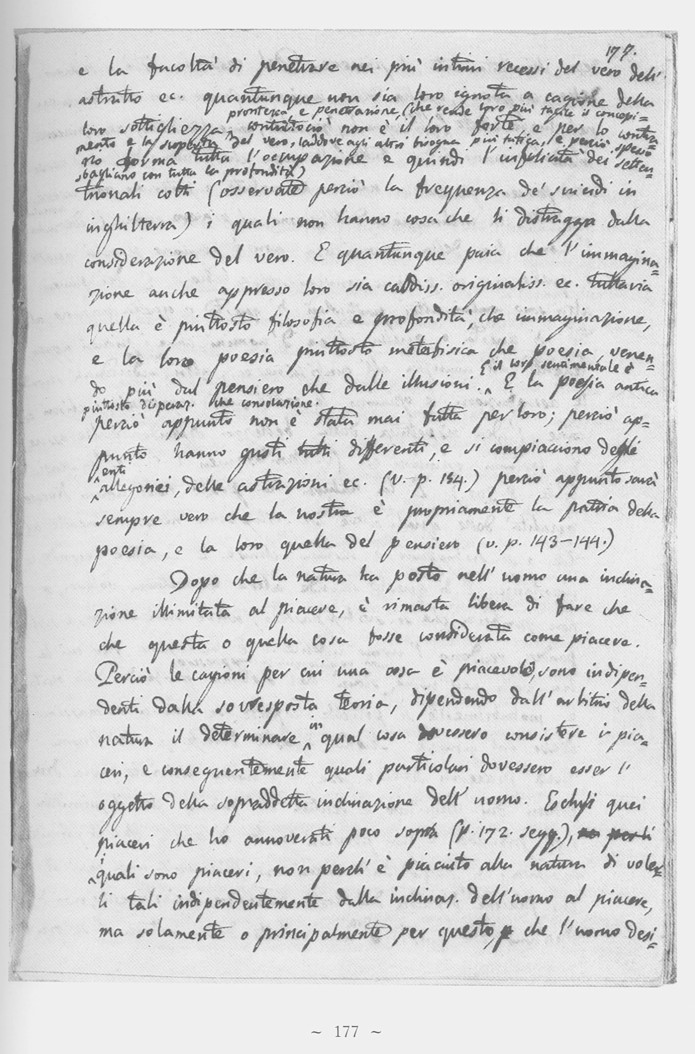 177.
e la facoltà di penetrare nei più intimi recessi del vero dell'
astratto ec. quantunque non sia loro ignota a cagione della
prontezza, e penetrazione, (che rende loro più facile il concepi=
loro sottigliezza, contuttociò non è il loro forte e per lo contra
mento e la scoperta del vero, laddove agli altri bisogna più fatica, e perciò spesso
rio forma tutta l'occupazione e quindi l'infelicità dei setten=
sbagliano con tutta la profondità)
trionali colti (osservate perciò la frequenza de' suicidi in
inghilterra) i quali non hanno cosa che li distragga dalla
considerazione del vero. E quantunque paia che l'immagina=
zione anche appresso loro sia caldiss. originaliss. ec. tuttavia
quella è piuttosto filosofia e profondità, che immaginazione,
e la loro poesia piuttosto metafisica che poesia, venen=
E il loro sentimentale è
do più dal pensiero che dalle illusioni. E la poesia antica
piuttosto disperaz. che consolazione.
perciò appunto non è stata mai fatta per loro; perciò ap=
punto hanno gusti tutti differenti, e si compiacciono degli
enti
allegorici, delle astrazioni ec. (v. p. 154.) perciò appunto sarà
sempre vero che la nostra è propriamente la patria della
poesia, e la loro quella del pensiero (v. p. 143-144.)
Dopo che la natura ha posto nell'uomo una inclina=
zione illimitata al piacere, è rimasta libera di fare che
che questa o quella cosa fosse considerata come piacere.
Perciò le cagioni per cui una cosa è piacevole, sono indipen=
denti dalla sovresposta teoria, dipendendo dall'arbitrio della
natura il determinare in qual cosa dovessero consistere i pia=
ceri, e conseguentemente quali particolari dovessero esser l'
oggetto della sopraddetta inclinazione dell'uomo. Eschisi quei
piaceri che ho annoverati poco sopra (p. 172. segg.),
i quali sono piaceri, non perch'è piaciuto alla natura di voler=
li tali indipendentemente dalla inclinaz. dell'uomo al piacere,
ma solamente o principalmente per questo, che l'uomo desi=
~ 177 ~